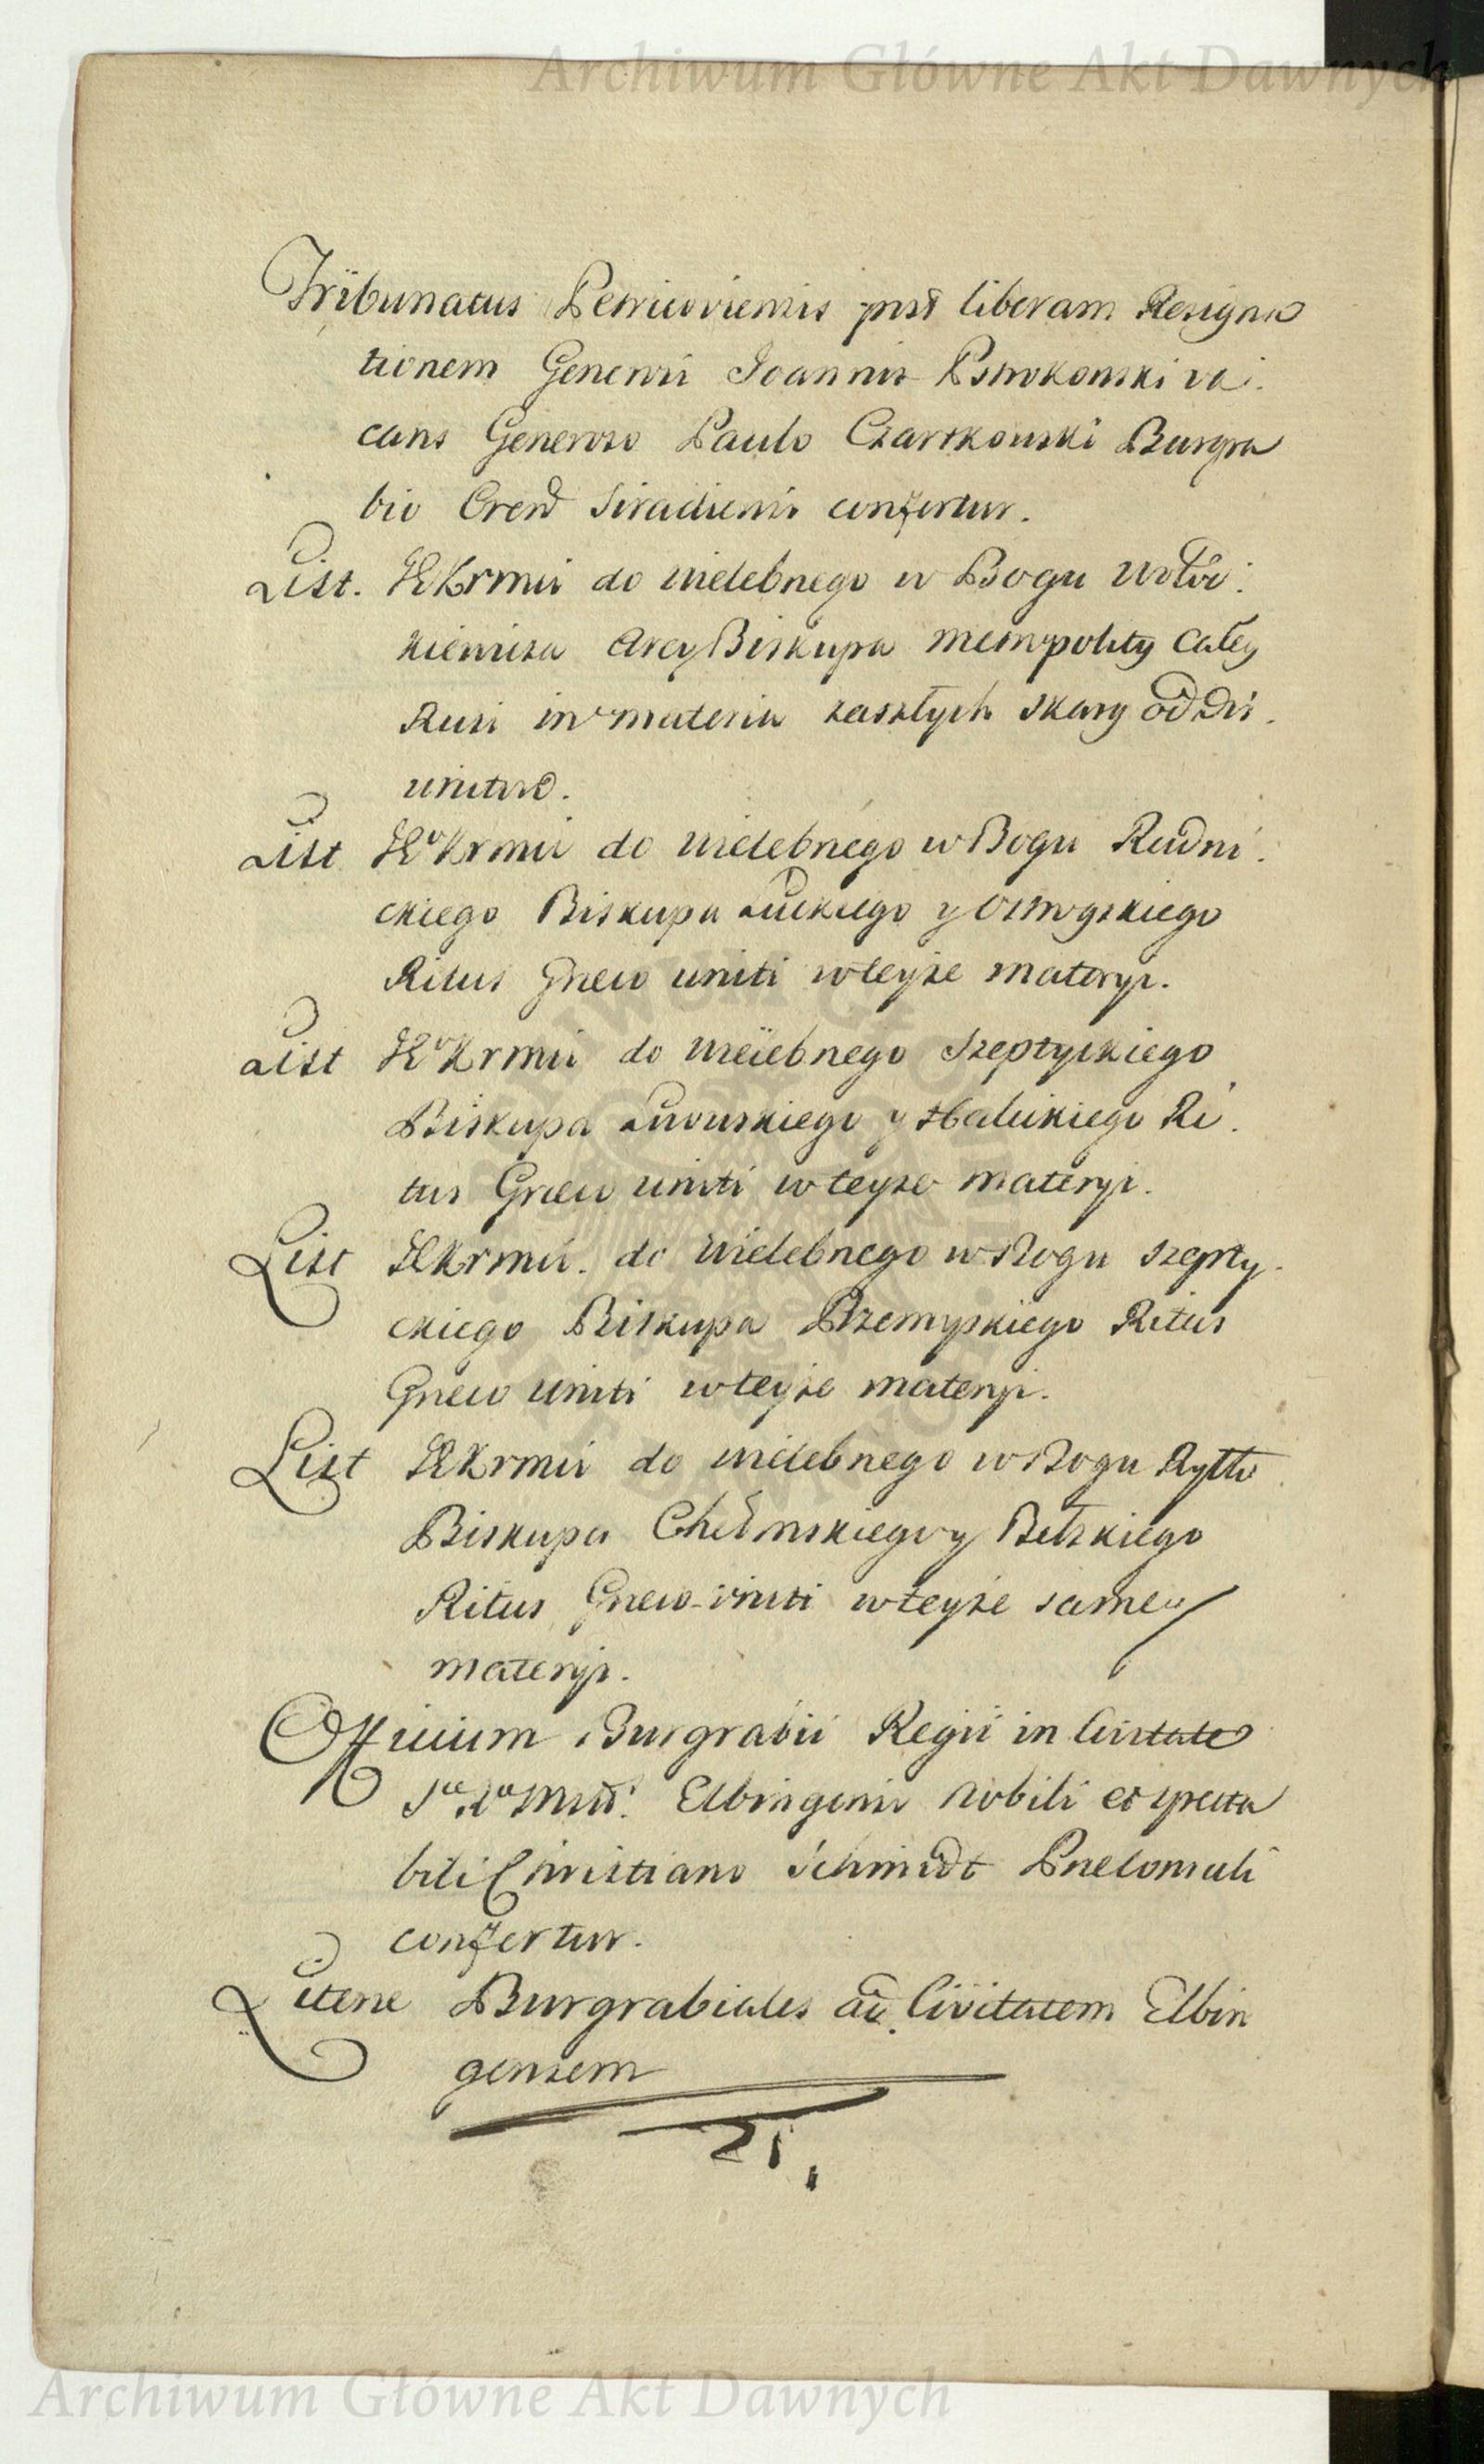 Archiwum Główne Akt Dawnych
Tribunatus Petricoviensis post liberam Resigna
tionem Generosi Joannis Pstrokonski va.
cans Generoso Paulo Czartkowski Burgra
bio Cren Siradiensi confertur.
List. JKrmci do wielebnego w Bogu Wołod.
kiewicza ArcyBiskupa metropolity całey
Rusi in materia zaszłych skarg od Dis.
unitow.
List JKrmci do wielebnego w Bogu Rudni.
ckiego Biskupa Łuckiego y Ostrogskiego
Ritus Graeco uniti w teyże materyi.
List JKrmci do wielebnego Szeptyckiego
Biskupa Lwowskiego y Halickiego Ri.
tus Graeco uniti w teyże materyi.
List JKrmci. do wielebnego w Bogu Szepty.
ckiego Biskupa Przemyskiego Ritus
Graeco uniti w teyże materyi.
List JKrmci do wielebnego w Bogu Ryłło
Biskupa Chełmskiego y Bełzkiego
Ritus Graeco uniti w teyże samey
materyi.
Officium Burgrabii Regii in Civitate
Elbingensi Nobili et specta
bili Christiano Schmidt Praeconsuli
confertur.
Literae Burgrabiales ad Civitatem Elbin
gensem
Archiwum Główne Akt Dawnych